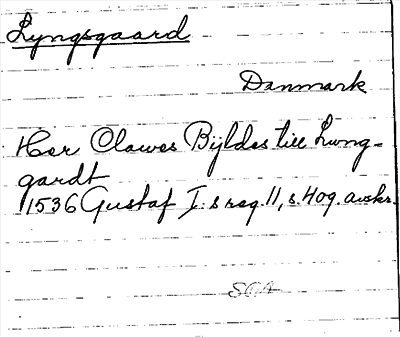 Lyngsgaard
Danmark
Her Clawes Bijldes till Lung-
gardt
1536 Gustaf I:s reg. 11, s. 409. avskr.
SOA